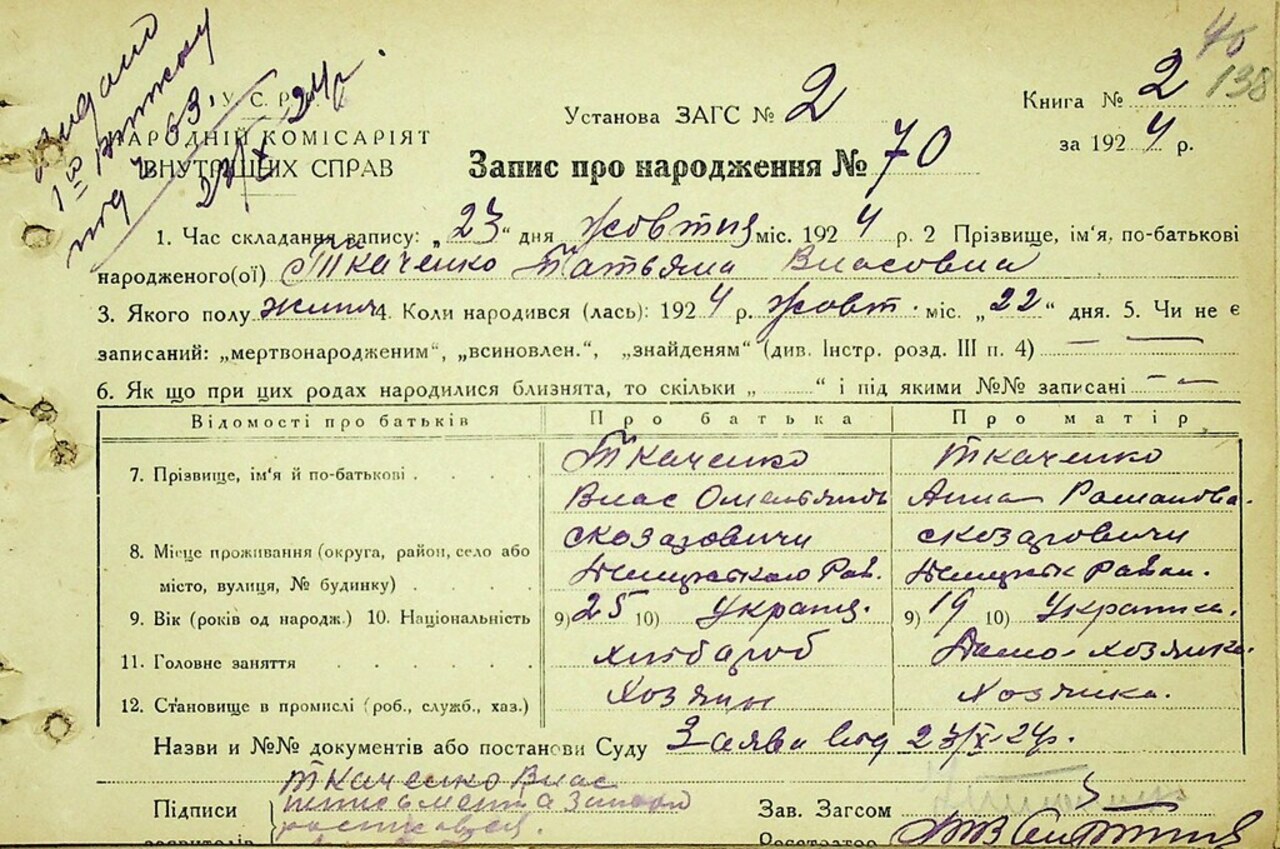 40
138
видано
1ю витжку
под ч 63.
23/X 24р.
У. С. Р. Р.
НАРОДНІЙ КОМІСАРІЯТ
ВНУТРІШНІХ СПРАВ
Установа ЗАГС № 2
Книга № 2
за 1924 р.
Запис про народження № 70
1. Час складання запису: „23“ дня жовтня міс. 1924 р. 2 Прізвище, ім'я, по-батькові
народженого(ої) Ткаченко Татьяна Власовна
3. Якого полу жіноч 4. Коли народився (лась): 1924 р. жовт. міс. „22“ дня. 5. Чи не є
записаний: „мертвонародженим“, „всиновлен.“, „знайденям“ (див. Інстр. розд. III п. 4) — —
6. Як що при цих родах народилися близнята, то скільки „ “ і під якими №№ записані — —
Відомості про батьків Про батька Про матір
7. Прізвище, ім'я й по-батькові Ткаченко Ткаченко
Влас Омельянов Анна Романова.
8. Місце проживання (округа, район, село або
місто, вулиця, № будинку)
Район.
9. Вік (років од народж.) 10. Національність 9) 25 10) Україн. 9) 19 10) Українка.
11. Головне заняття хлібороб Дамо-хозяйка.
12. Становище в промислі (роб., служб., хаз.) Хозяин Хозяйка.
Назви и №№ документів або постанови Суду Заява від 23/X-24р.
Ткаченко Влас
Підписи
Зав. Загсом